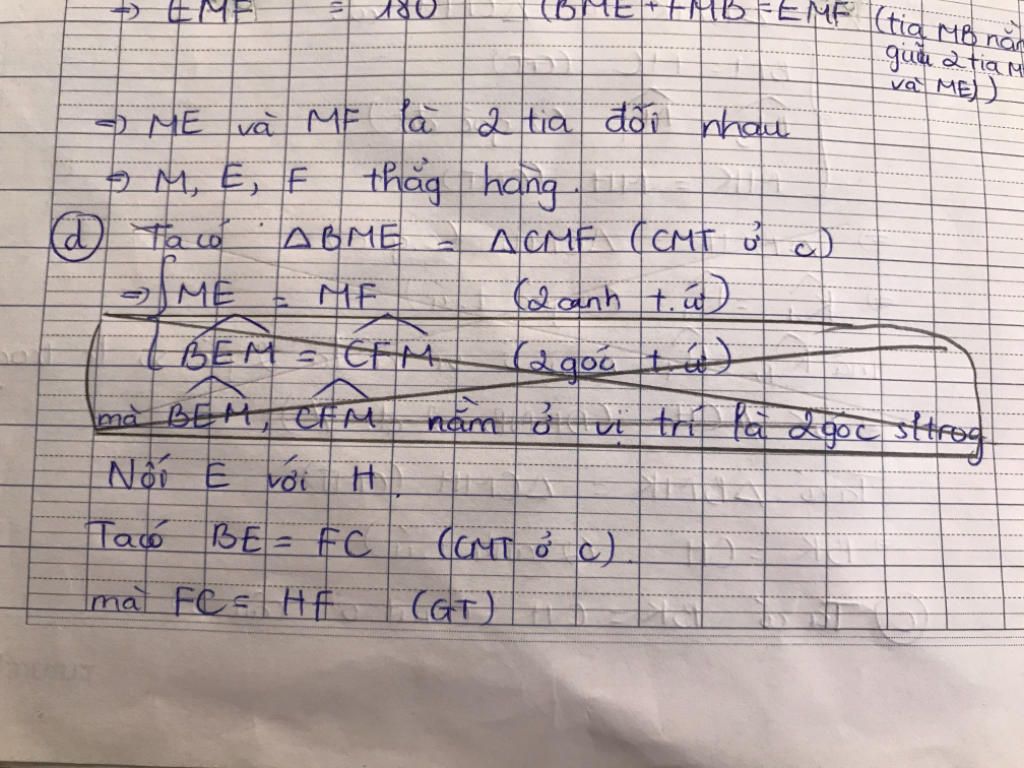 ⇒ EMF = 180 (BME + FMB = EMF (tia MB nằm
giữa 2 tia M
và ME))
⇒ ME và MF là 2 tia đối nhau
⇒ M, E, F thẳg hàng.
d Ta có ΔBME = ΔCMF (CMT ở c)
⇒ ME = MF (2 cạnh t.ứ)
BEM = CFM (2 góc t.ứ)
mà BEM, CFM nằm ở vị trí là 2 góc sltrog
Nối E với H.
Ta có BE = FC (CMT ở c).
mà FC = HF (GT)